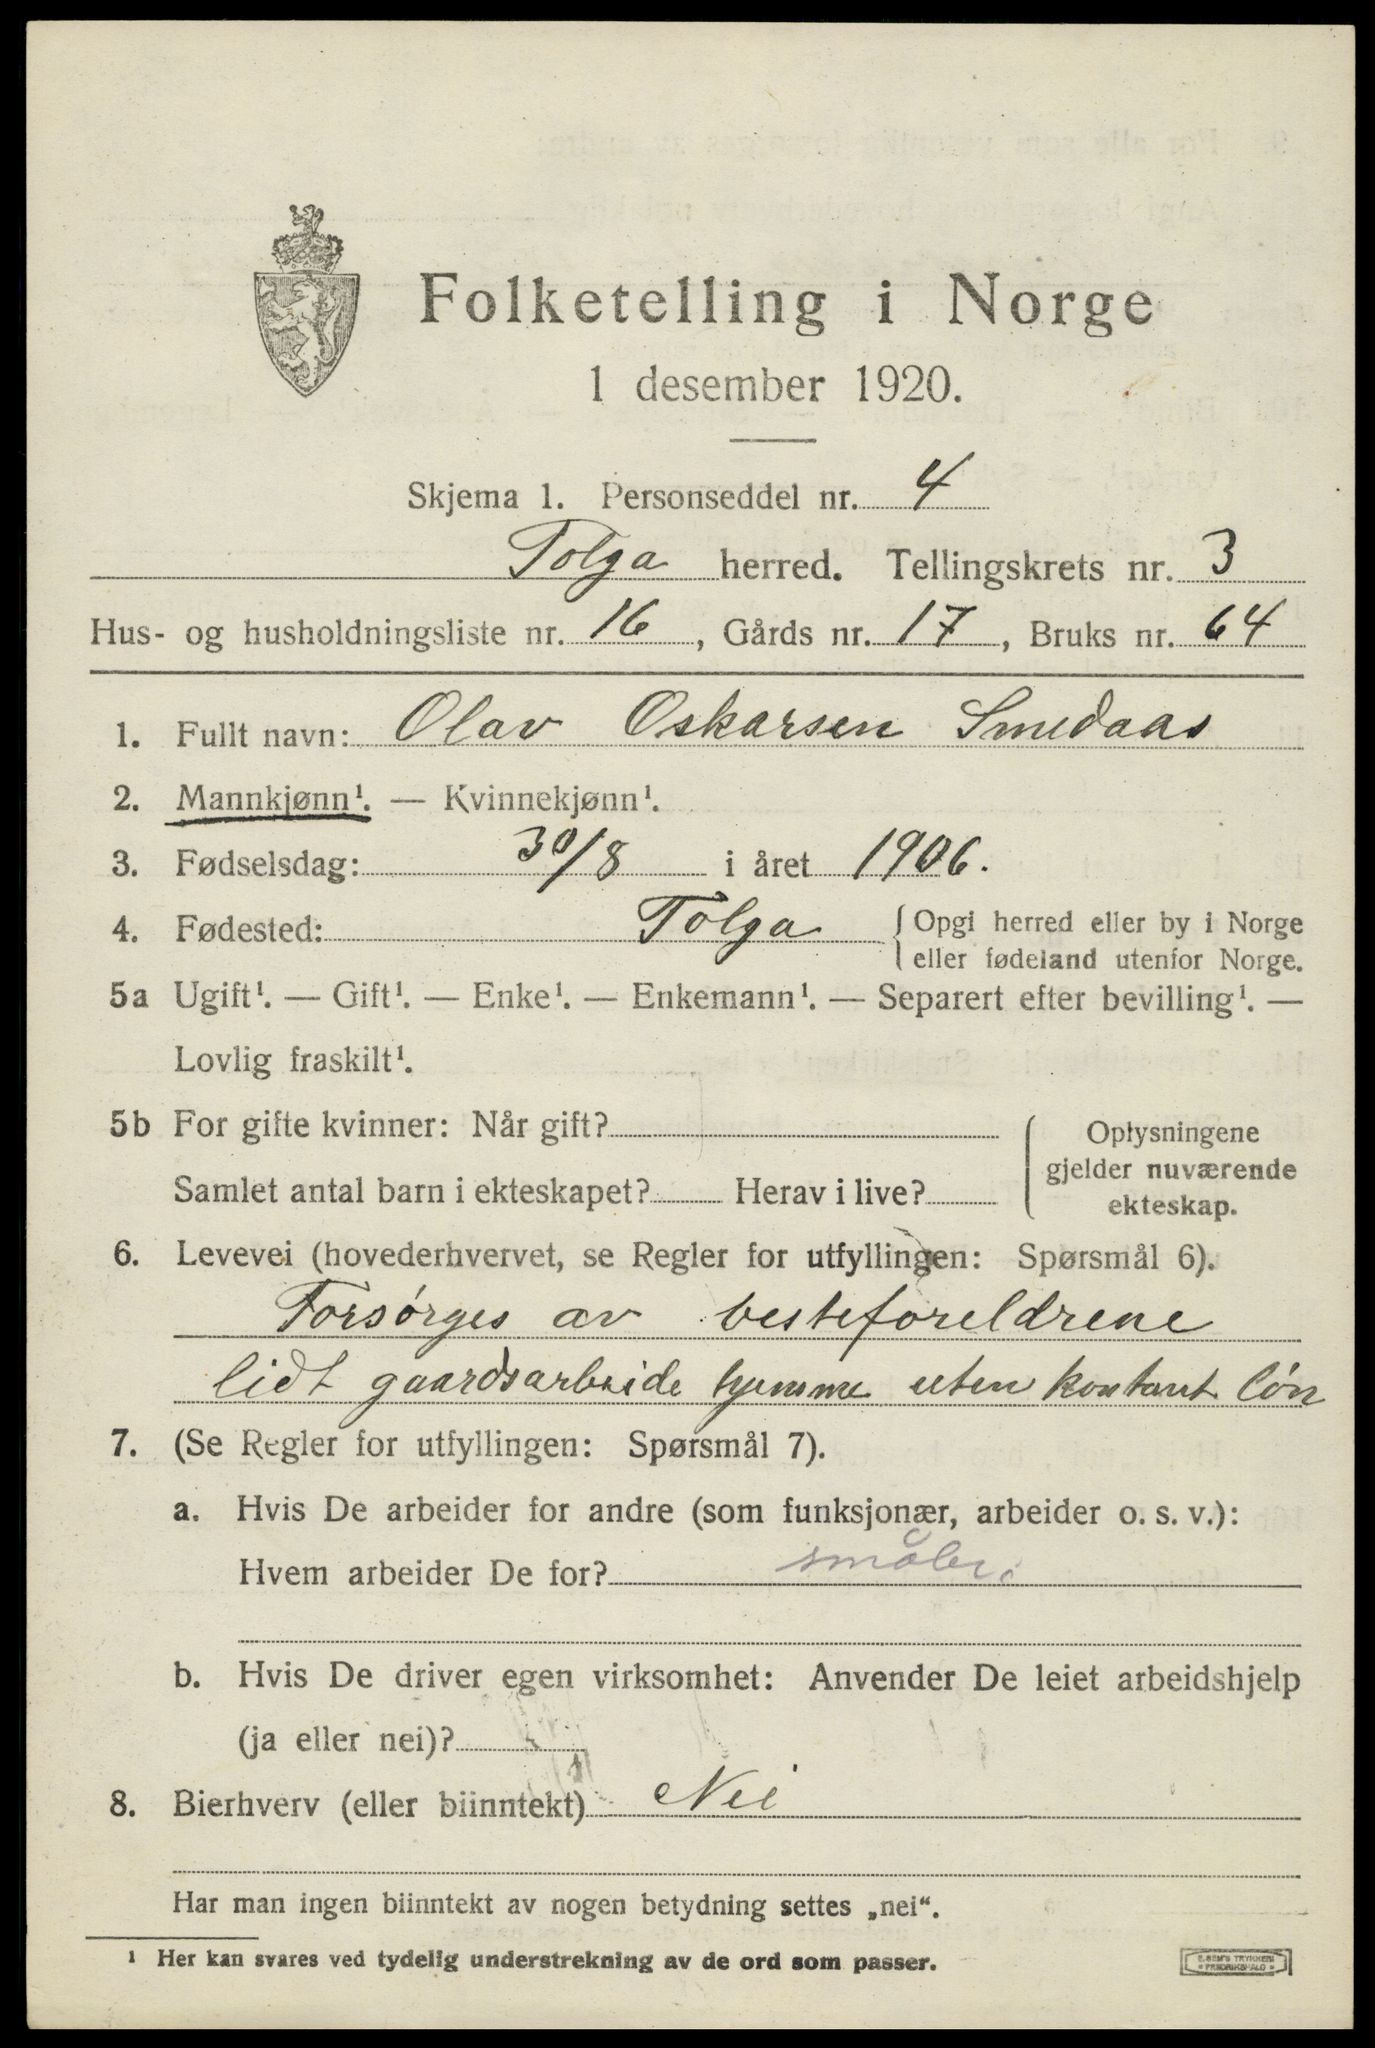 Folketelling i Norge
1 desember 1920.
Skjema 1. Personseddel nr. 4
Tolga herred. Tellingskrets nr. 3
Hus- og husholdningsliste nr. 16, Gårds nr. 17, Bruks nr. 64
1. Fullt navn: Olav Oskarsen Smedaas
2. Mannkjønn¹. — Kvinnekjønn¹.
3. Fødselsdag: 30/8 i året 1906.
4. Fødested: Tolga { Opgi herred eller by i Norge
eller fødeland utenfor Norge.
5a Ugift¹. — Gift¹. — Enke¹. — Enkemann¹. — Separert efter bevilling¹. —
Lovlig fraskilt¹.
5b For gifte kvinner: Når gift?
Samlet antal barn i ekteskapet? Herav i live?
Oplysningene
gjelder nuværende
ekteskap.
6. Levevei (hovederhvervet, se Regler for utfyllingen: Spørsmål 6).
Forsørges av besteforeldrene
lidt gaardsarbeide hjemme uten kontant løn
7. (Se Regler for utfyllingen: Spørsmål 7).
a. Hvis De arbeider for andre (som funksjonær, arbeider o. s. v.):
Hvem arbeider De for? småbr.
b. Hvis De driver egen virksomhet: Anvender De leiet arbeidshjelp
(ja eller nei)?
8. Bierhverv (eller biinntekt) Nei
Har man ingen biinntekt av nogen betydning settes „nei“.
¹ Her kan svares ved tydelig understrekning av de ord som passer.
E. SEM'S TRYKKERI
FREDRIKSHALD